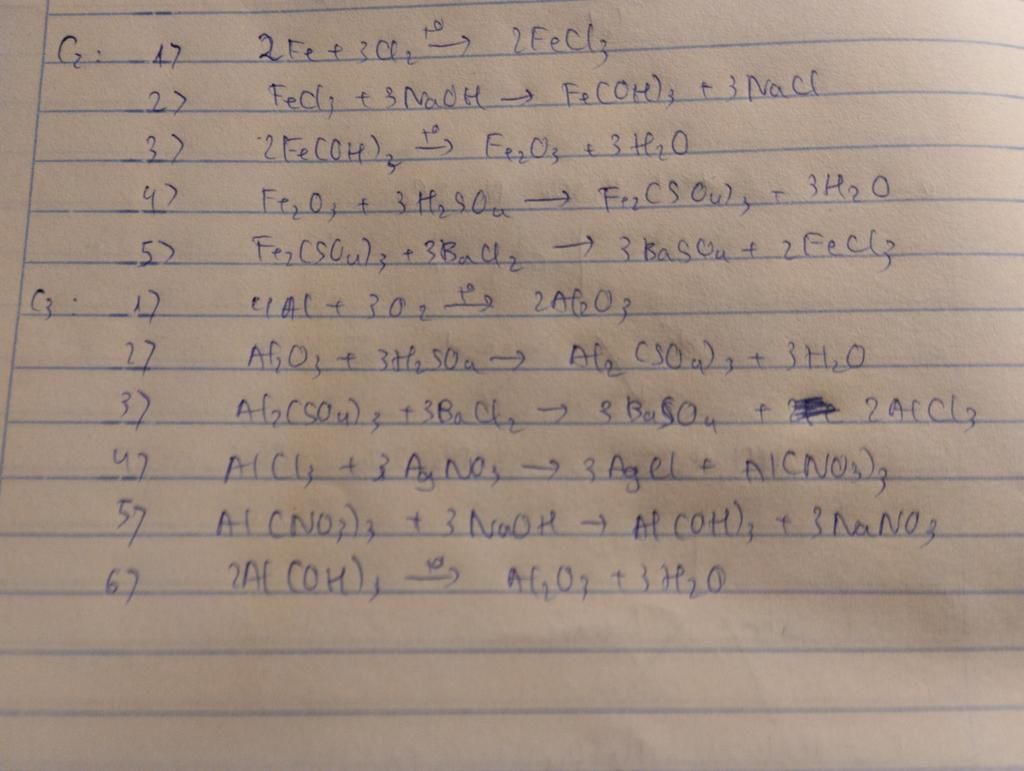 C₂: 1) 2Fe + 3Cl₂ t⁰→ 2FeCl₃
2) FeCl₃ + 3NaOH → Fe(OH)₃ + 3NaCl
3) 2Fe(OH)₃ t⁰→ Fe₂O₃ + 3H₂O
4) Fe₂O₃ + 3H₂SO₄ → Fe₂(SO₄)₃ + 3H₂O
5) Fe₂(SO₄)₃ + 3BaCl₂ → 3BaSO₄ + 2FeCl₃
C₃: 1) 4Al + 3O₂ t⁰→ 2Al₂O₃
2) Al₂O₃ + 3H₂SO₄ → Al₂(SO₄)₃ + 3H₂O
3) Al₂(SO₄)₃ + 3BaCl₂ → 3BaSO₄ + 2AlCl₃
4) AlCl₃ + 3AgNO₃ → 3AgCl + Al(NO₃)₃
5) Al(NO₃)₃ + 3NaOH → Al(OH)₃ + 3NaNO₃
6) 2Al(OH)₃ t⁰→ Al₂O₃ + 3H₂O